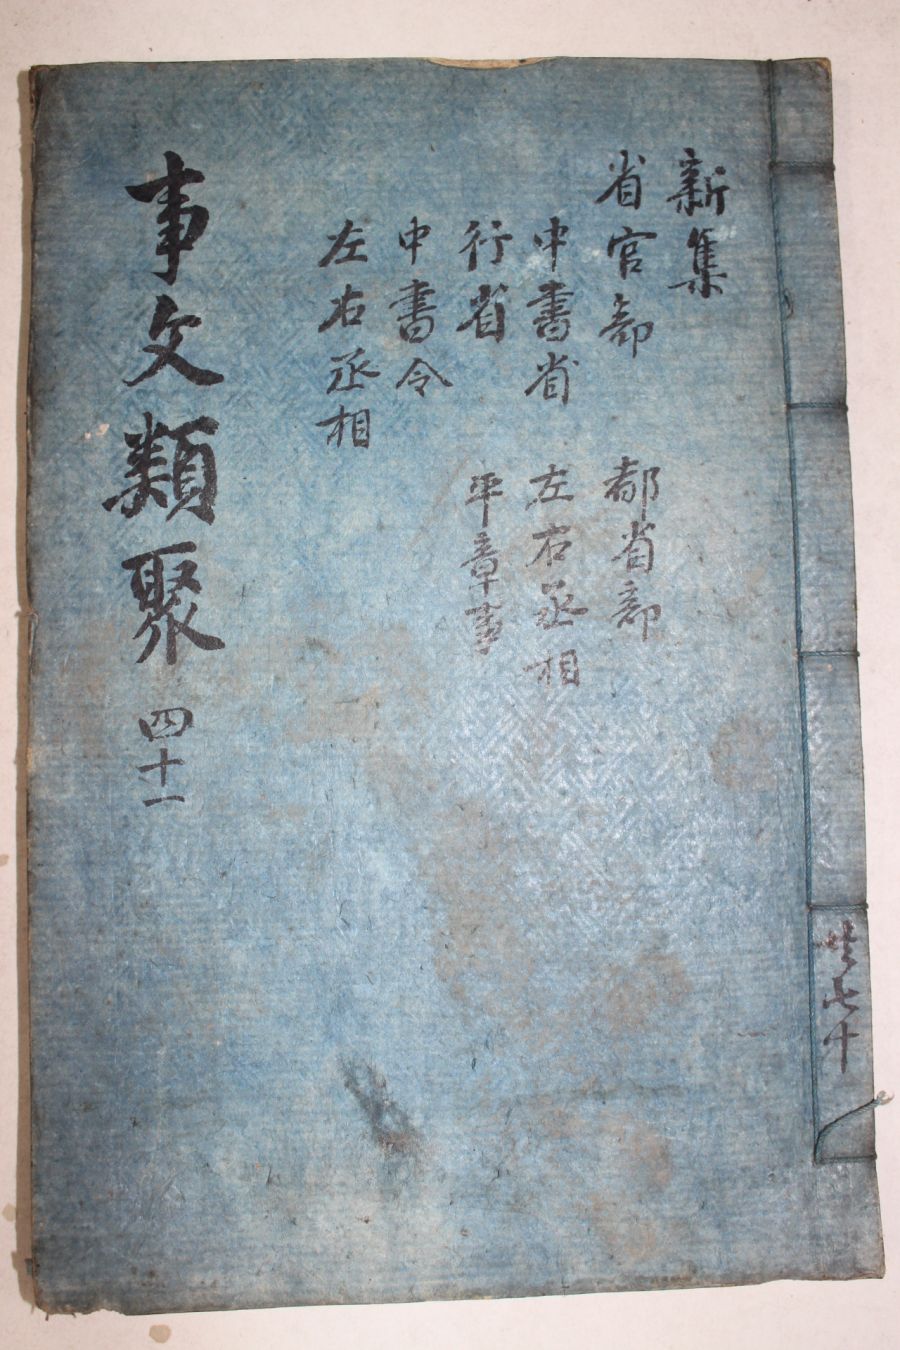 新集
省官部 都省部
中書省 左右丞相
行省 平章事
中書令
左右丞相
事文類聚 四十一
共七十